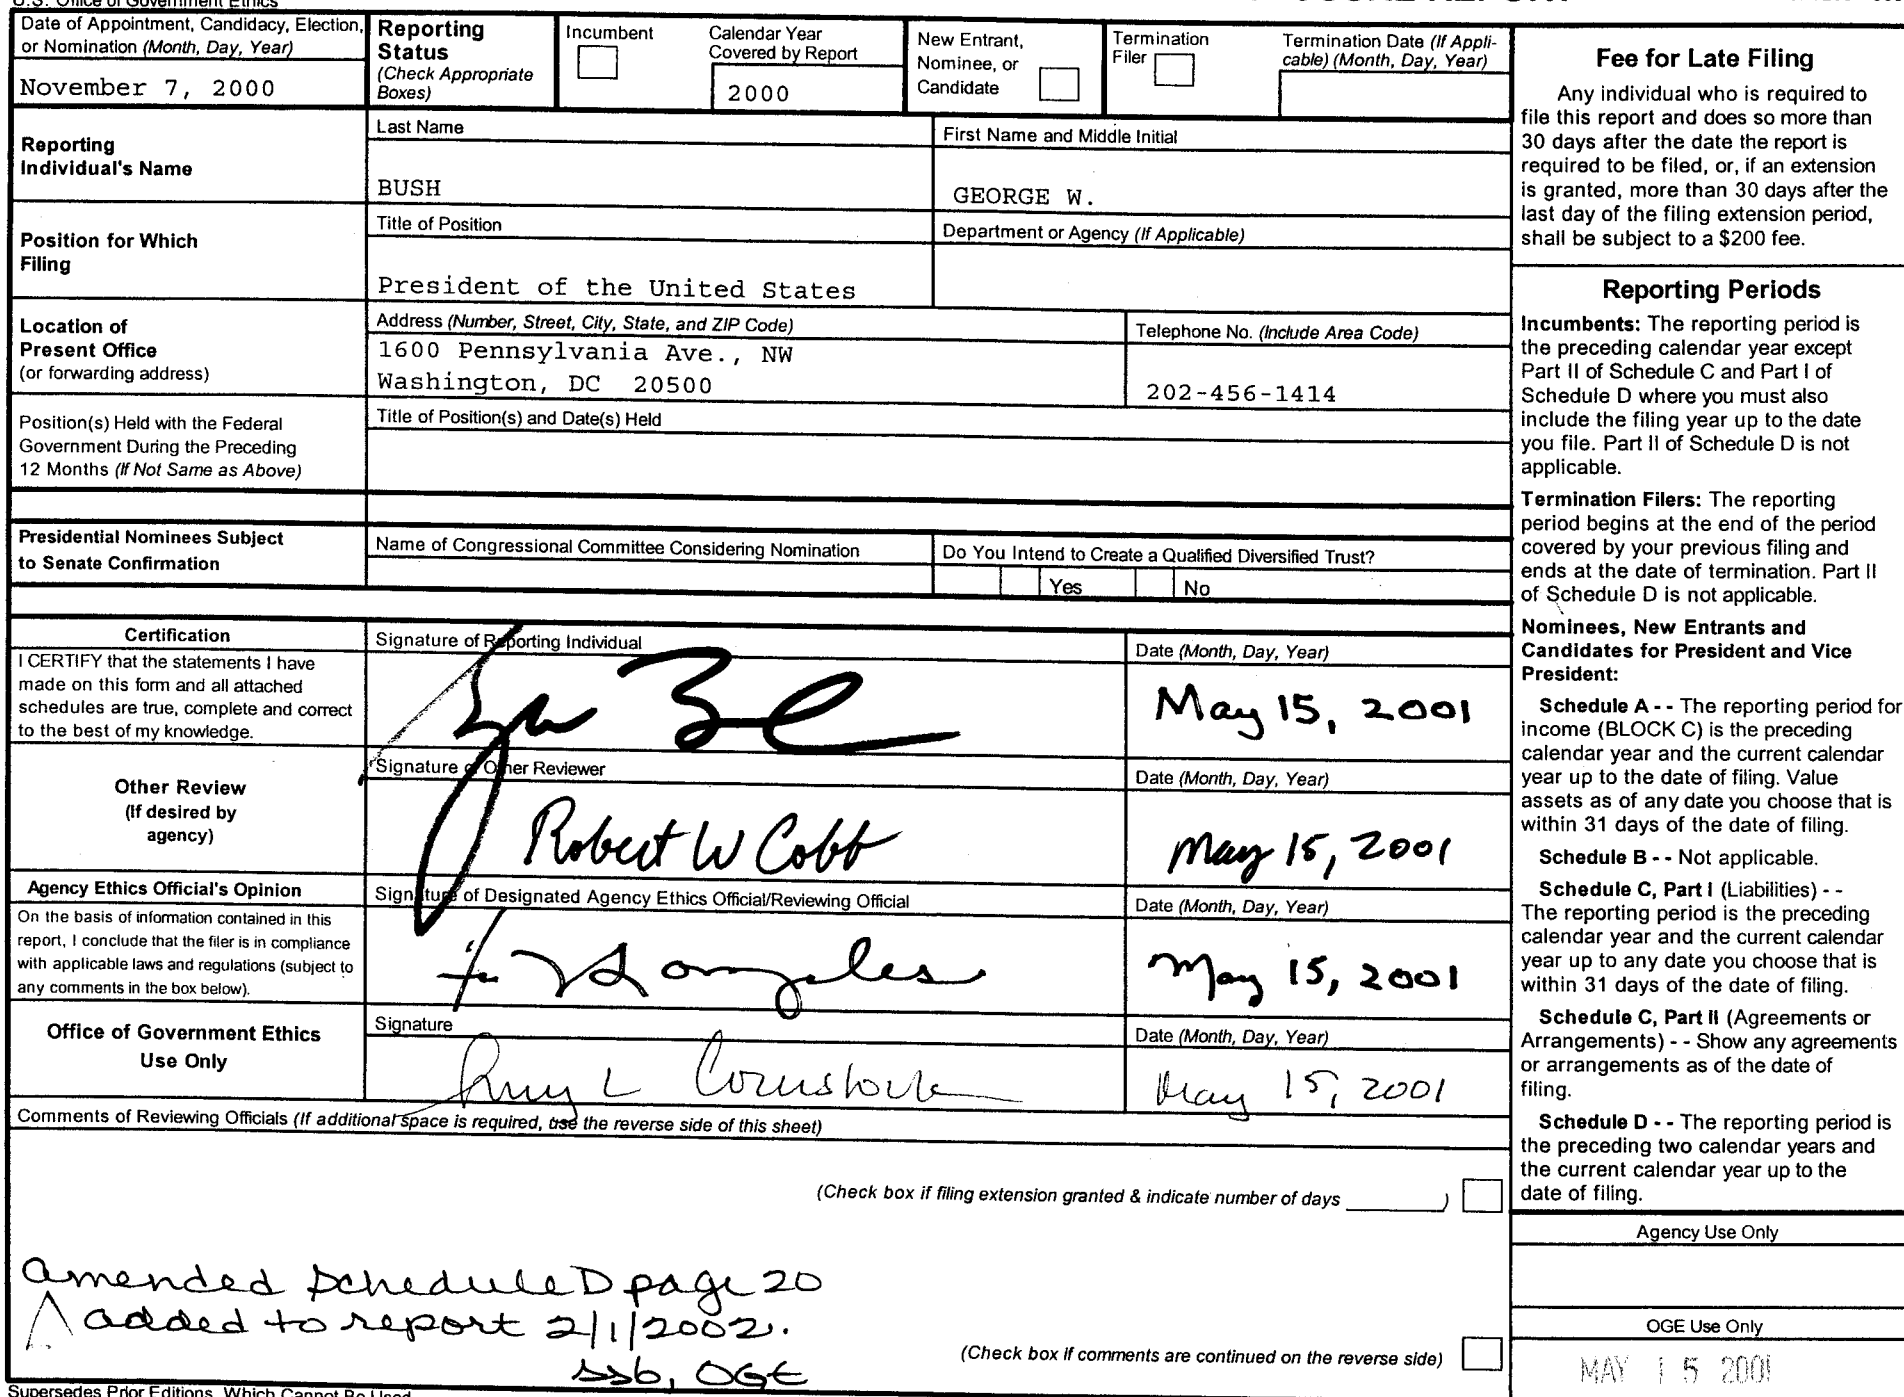 U.S. Office of Government Ethics
Date of Appointment, Candidacy, Election,
or Nomination (Month, Day, Year)
November 7, 2000
Reporting
Status
(Check Appropriate
Boxes)
Incumbent
Calendar Year
Covered by Report
2000
New Entrant,
Nominee, or
Candidate
Termination
Filer
Termination Date (If Appli-
cable) (Month, Day, Year)
Reporting
Individual's Name
Last Name
BUSH
First Name and Middle Initial
GEORGE W.
Position for Which
Filing
Title of Position
President of the United States
Department or Agency (If Applicable)
Location of
Present Office
(or forwarding address)
Address (Number, Street, City, State, and ZIP Code)
1600 Pennsylvania Ave., NW
Washington, DC 20500
Telephone No. (Include Area Code)
202-456-1414
Position(s) Held with the Federal
Government During the Preceding
12 Months (If Not Same as Above)
Title of Position(s) and Date(s) Held
Presidential Nominees Subject
to Senate Confirmation
Name of Congressional Committee Considering Nomination
Do You Intend to Create a Qualified Diversified Trust?
Yes
No
Certification
I CERTIFY that the statements I have
made on this form and all attached
schedules are true, complete and correct
to the best of my knowledge.
Signature of Reporting Individual
Date (Month, Day, Year)
May 15, 2001
Other Review
(If desired by
agency)
Signature of Other Reviewer
Robert W Cobb
Date (Month, Day, Year)
May 15, 2001
Agency Ethics Official's Opinion
On the basis of information contained in this
report, I conclude that the filer is in compliance
with applicable laws and regulations (subject to
any comments in the box below).
Signature of Designated Agency Ethics Official/Reviewing Official
Gonzales
Date (Month, Day, Year)
May 15, 2001
Office of Government Ethics
Use Only
Signature
L Comstock
Date (Month, Day, Year)
May 15, 2001
Comments of Reviewing Officials (If additional space is required, use the reverse side of this sheet)
(Check box if filing extension granted & indicate number of days ________)
amended Schedule D page 20
added to report 2/1/2002.
ssb, OGE
(Check box if comments are continued on the reverse side)
Supersedes Prior Editions, Which Cannot Be Used.
Fee for Late Filing
Any individual who is required to
file this report and does so more than
30 days after the date the report is
required to be filed, or, if an extension
is granted, more than 30 days after the
last day of the filing extension period,
shall be subject to a $200 fee.
Reporting Periods
Incumbents: The reporting period is
the preceding calendar year except
Part II of Schedule C and Part I of
Schedule D where you must also
include the filing year up to the date
you file. Part II of Schedule D is not
applicable.
Termination Filers: The reporting
period begins at the end of the period
covered by your previous filing and
ends at the date of termination. Part II
of Schedule D is not applicable.
Nominees, New Entrants and
Candidates for President and Vice
President:
Schedule A - - The reporting period for
income (BLOCK C) is the preceding
calendar year and the current calendar
year up to the date of filing. Value
assets as of any date you choose that is
within 31 days of the date of filing.
Schedule B - - Not applicable.
Schedule C, Part I (Liabilities) - -
The reporting period is the preceding
calendar year and the current calendar
year up to any date you choose that is
within 31 days of the date of filing.
Schedule C, Part II (Agreements or
Arrangements) - - Show any agreements
or arrangements as of the date of
filing.
Schedule D - - The reporting period is
the preceding two calendar years and
the current calendar year up to the
date of filing.
Agency Use Only
OGE Use Only
MAY 15 2001